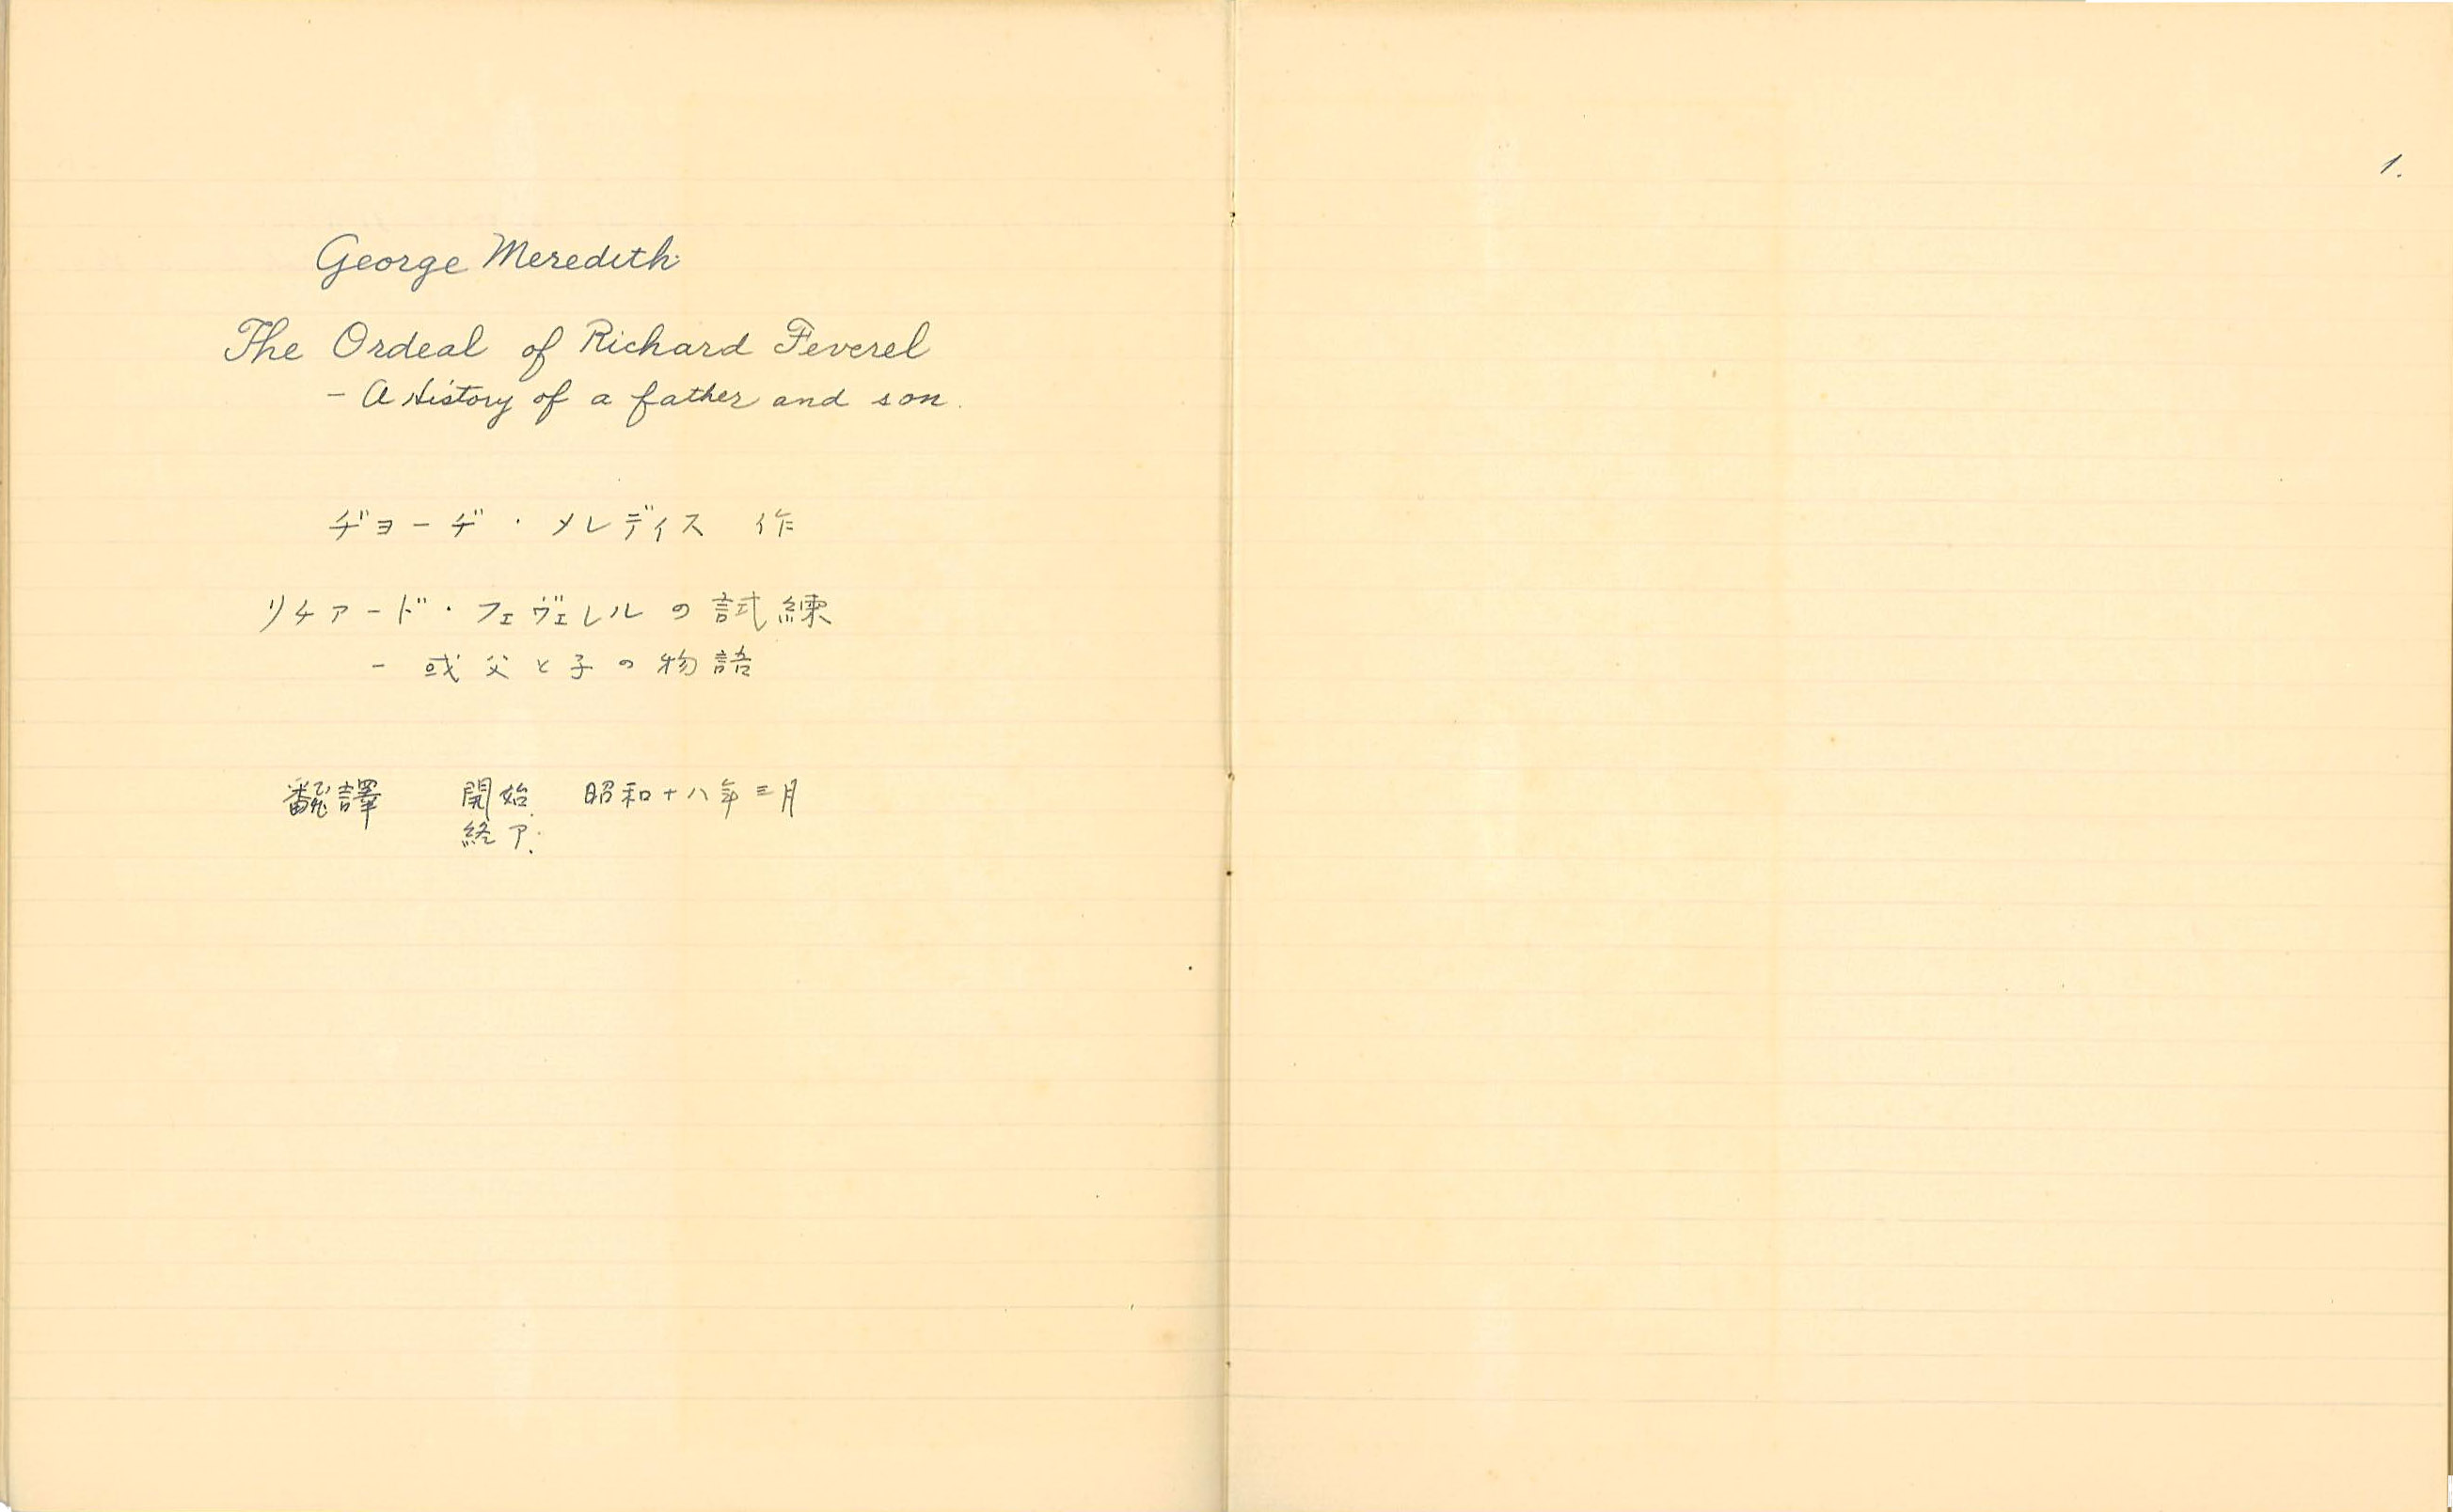 George Meredith
The Ordeal of Richard Feverel
- A History of a father and son.
ヂョーヂ・メレディス 作
リチァード・フェヴェレルの試練
- 或父と子の物語
飜譯 開始. 昭和十八年三月
終了.
1.